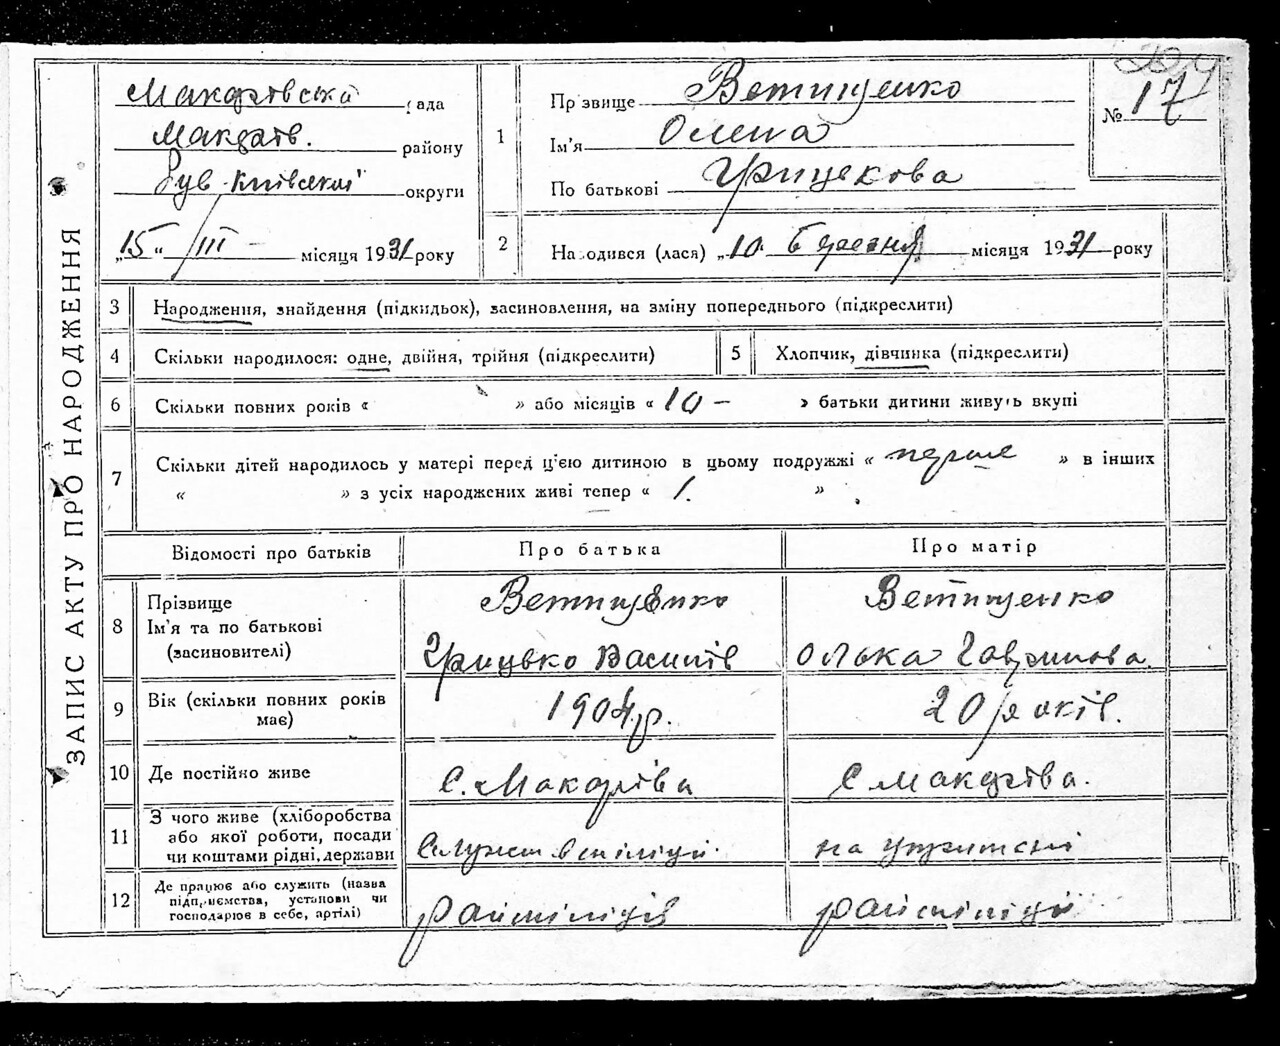 ЗАПИС АКТУ ПРО НАРОДЖЕННЯ
Макарівська рада
Макарів. району
Київської округи
„15“ III – місяця 1931 року
1 Прізвище Ветищенко
Ім'я Олена
По батькові Грицькова
№ 17
2 Народився (лася) „10 березня місяця 1931 року
3 Народження, знайдення (підкидьок), засиновлення, на зміну попереднього (підкреслити)
4 Скільки народилося: одне, двійня, трійня (підкреслити)
5 Хлопчик, дівчинка (підкреслити)
6 Скільки повних років « » або місяців « 10 – » батьки дитини живуть вкупі
7 Скільки дітей народилось у матері перед ц'єю дитиною в цьому подружжі « перше » в інших
« » з усіх народжених живі тепер « 1. »
Відомості про батьків Про батька Про матір
8 Прізвище
Ім'я та по батькові
(засиновителі)
Ветищенко
Грицько Василів
Ветищенко
Олька Гаврилова
9 Вік (скільки повних років
має)
1904 р.
20 років.
10 Де постійно живе
С. Макарів
С Макарів
11 З чого живе (хліборобства
або якої роботи, посади
чи коштами рідні, держави
Служит в міліції
на утриманні
12 Де працює або служить (назва
підприємства, установи чи
господарює в себе, артілі)
райміліція
райміліції